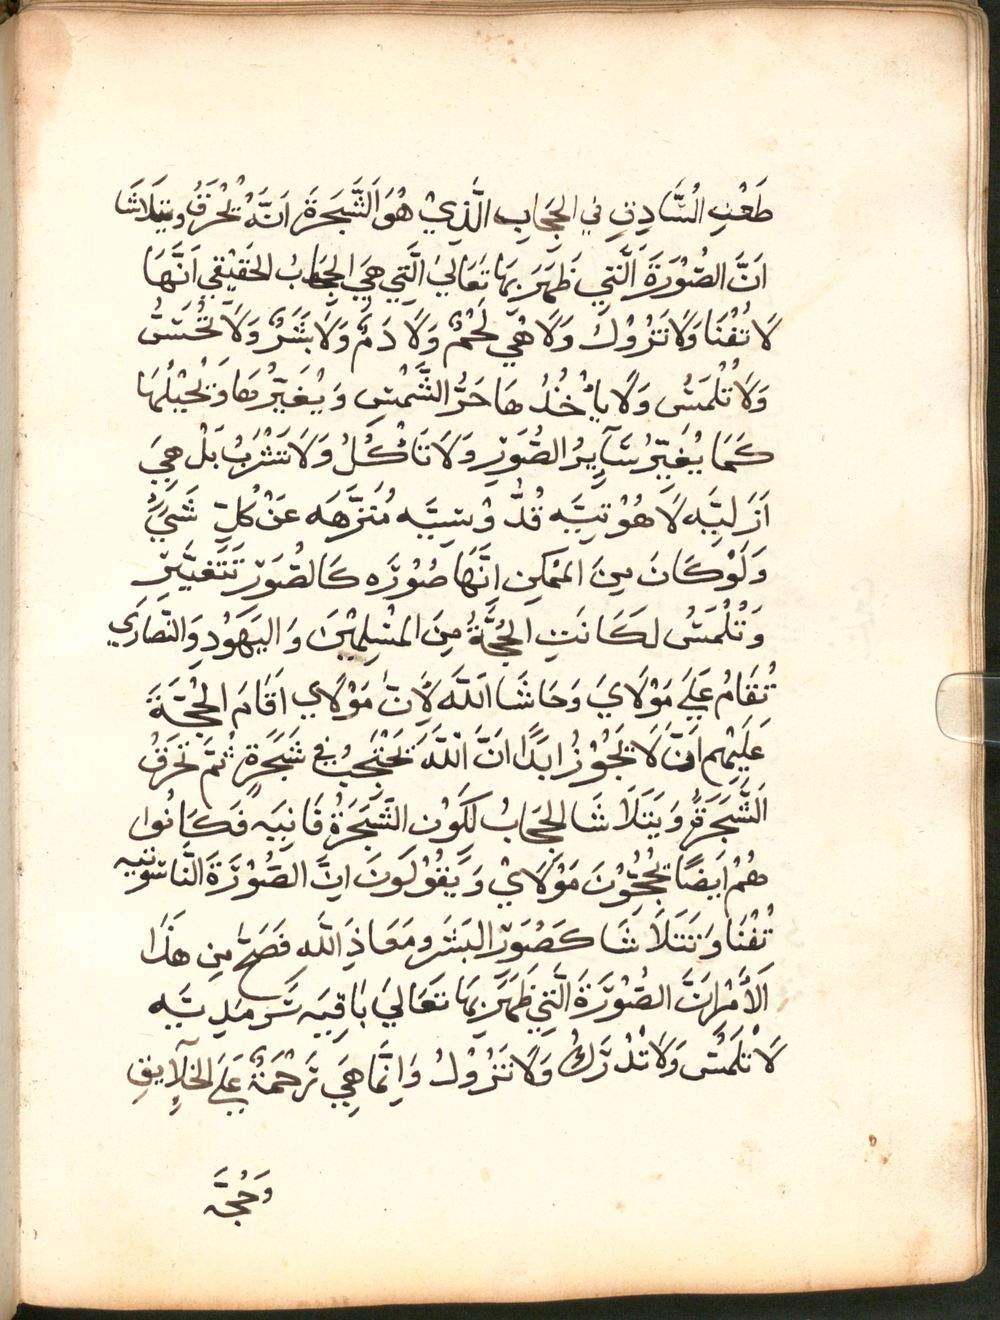 طَعْنِ السَّادِقِ في الحِجَابِ الَّذِيْ هْوَ الَشَّجَرَةَ اَنَّهُ تُحْرَقُ ويتلاشَا
انَّ الصُّوْرَةَ الَّتِي ظَهَرَ بِهَا تَعَالىَ الَّتِي هِيَ الحِجَابُ الحَقيْقي اَنَّهَا
لَا تُفْنَا وَلَا تَزُوْلُ وَلَا هْي لَحْمٌ وَلَا دَمٌ وَلَا بَشَرٌ وَلَا تُحَسُّ
وَلَا تُلْمَسُ وَلَا يأْخُذُهَا حَرُّ الشَّمْسِ وَيُغَيّرُهَا وَ
كَمَا يُغَيّرُ سَآيِرُ الصُّوَرِ وَلَا تَأْكُلُ وَلَا تَشْرَبُ بَلْ هِيَ
اَزَليَّه لَاهُوْتيَّه قُدُّوْسِيَّه مُنَزَّهَه عَنْ كُلِّ شَيَءٍ
وَلَوْ كَانَ مِنَ المُمْكِنِ اِنَّهَا صُوْرَه كَالصُّوَرْ تَتَغَيَّرُ
وَتُلْمَسُ لَكَانَتِ الحُجَّةُ مِنَ المُسْلِمِيْنَ وَاليَهَوْدِ وَالنَّصَارَي
تُقَامُ عَلَىَ مَوْلَايَ وَحَاشَا اَللَّه لِأَنَّ مَوْلَاي اَقَامَ الحُجَّةَ
عَلَيْهِم اَنَّ لَا يَجُوْزُ ابَدًا انَّ اَللَّهَ يَحْتَجِبُ في شَجَرَةٍ ثُمَّ تَحْرَقُ
اَلشَّجَرَةُ وَيَتَلَاشَا الحِجَابُ لِكَوْن الشَّجَرَةْ فَانِيَه فَكَانُوا
هُمْ اَيضًا يُحُجُّوْنَ مَوْلَايْ وَيَقُوْلَوْنَ اِنَّ الصُّوْرَةَ النَّاسُوْتيه
تُفْنَا وَتَتَلَاشَا كَصُوَرْ البَشَر وَمَعَاذِ اَللَّه فَصَحَّ مِن هَذَا
اَلأَمْر انَّ الصُّوْرَةَ الَّتِي ظَهَرَ بِهَا تَعَاليَ بَاقِيَه سَّرمَدِيَّه
لَا تُلْمَسُ وَلَا تُدْرَكُ وَلَا تَزُوْلُ وَاِنَّمَا هِيَ رَحْمَةٌ عَلىَ الخَلَآيِقِ
وَحُجَّه